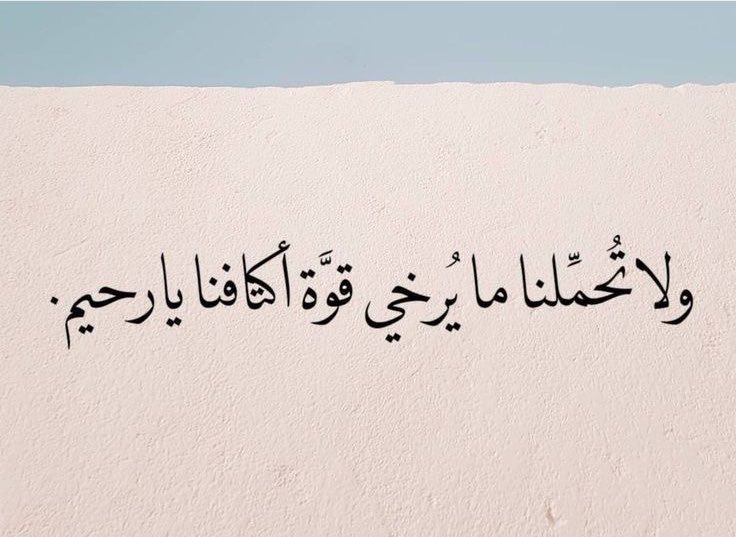 ولا تُحمِّلنا ما يُرخي قوَّة أكتافنا يا رحيم.